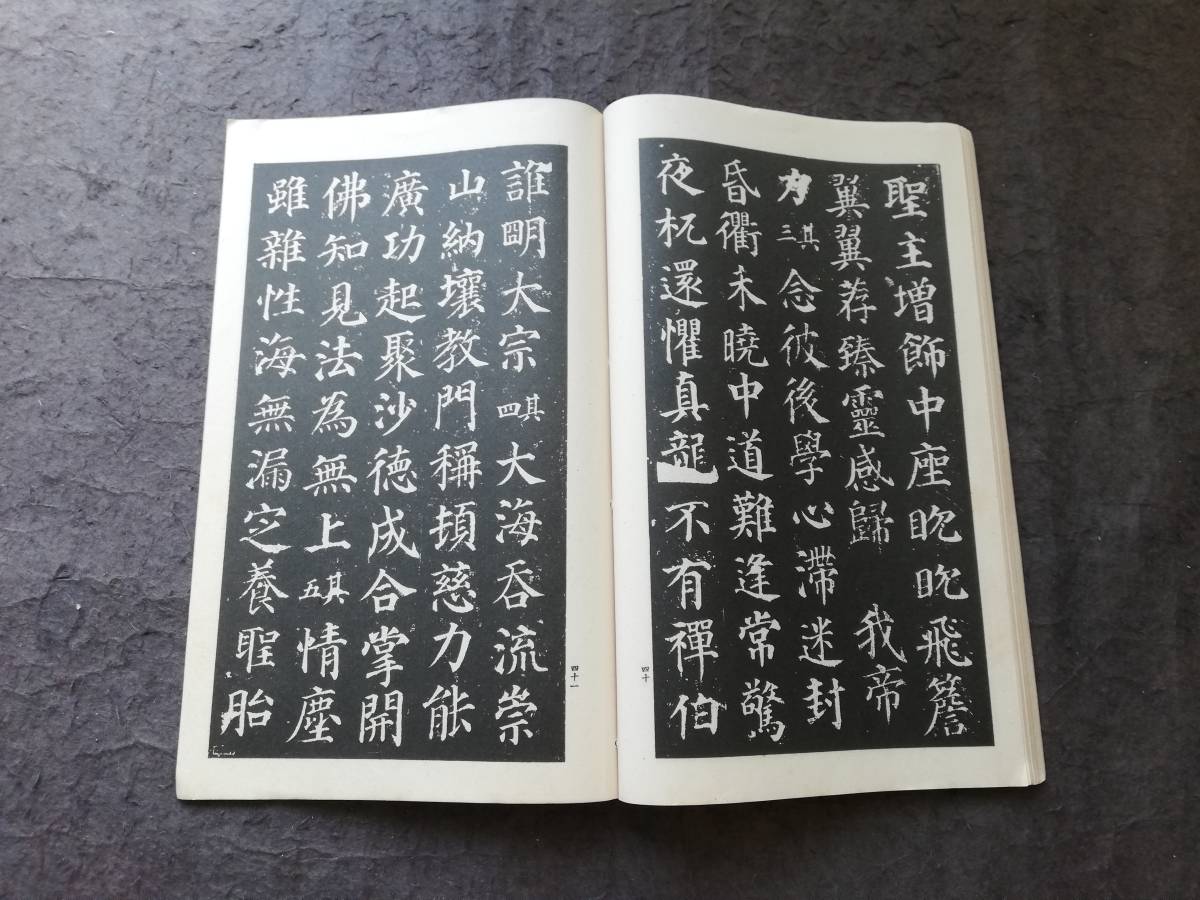 聖主增飾中座眈眈飛簷
翼翼荐臻靈感歸我帝
力其三念彼後學心滯迷封
昏衢未曉中道難逢常驚
夜杌還懼真龍不有禪伯
四十
誰明大宗其四大海吞流崇
山納壤教門稱頓慈力能
廣功起聚沙德成合掌開
佛知見法為無上其五情塵
雖雜性海無漏定養聖胎
四十一